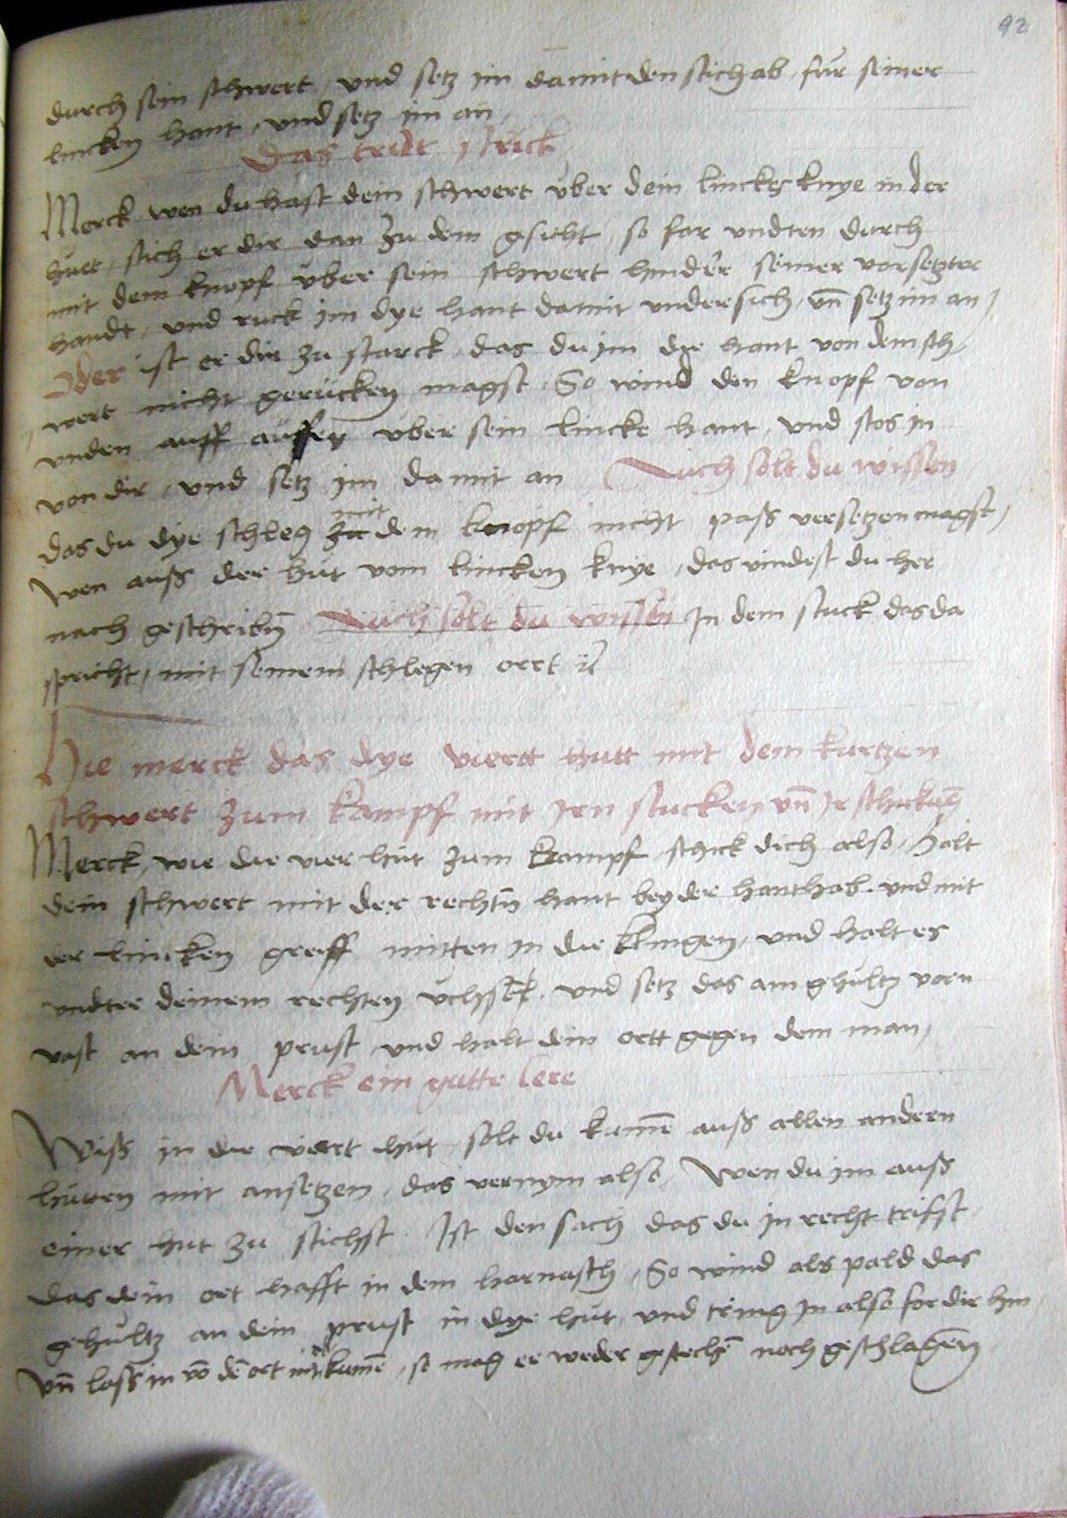 92
durch sein schwert / und setz im damit den stich ab / für seiner
lincken hant / und setz im an
Das tridt stuck
Merck wen du hast dein schwert über dein linckes knye in der
huet / stich er dir dan zu dem gesicht / so far undten durch
mit dem knopf über sein schwert hinder seiner vorsetzter
handt / und ruck im dye hant damit undersich / un̄ setz im an /
Oder ist er dir zu starck / das du im die hant von dem sch/
wert nicht gerücken magst / So wind den knopf von
unden auff aussen über sein lincke hant / und stos in
von dir / und setz im damit an Auch solt du wissen
das du dye schleg mit dem knopf nicht paß versetzen magst /
wen auß der hut vom lincken knye / das vindest du her
nach geschribn̄ Auch solt du wissen In dem stuck das da
spricht / mit seinem schlegen ortt
Hie merck das dye viertt hutt mit dem kurtzen
schwert zum kampf mit irn stucken un̄ ir schickung
Merck / wie die vier hüt zum kampf / schick dich also / Halt
dein schwert mit der rechtn̄ hant bey der hanthab / und mit
der lincken greiff mitten in die klingen / und halt es
undter deinem rechten üchsen / und setz das am ghultz vorn
vast an dein prust / und halt dein ortt gegen dem man /
Merck ein gutte lere
Wiß in die viert hüt solt du kum̄e auß allen andern
hütten mit ansetzen / das vernym also / Wen du im auß
einer hut zu stichst / Ist den sach das du in recht trifst /
das dein ort hafft in dem harnasch / So wind als pald das
gehültz an dein prust in dye hüt / und tring in also for dir hin
un̄ laß in vō dē ort nit kum̄e / so mag er weder gestechē noch geschlagen